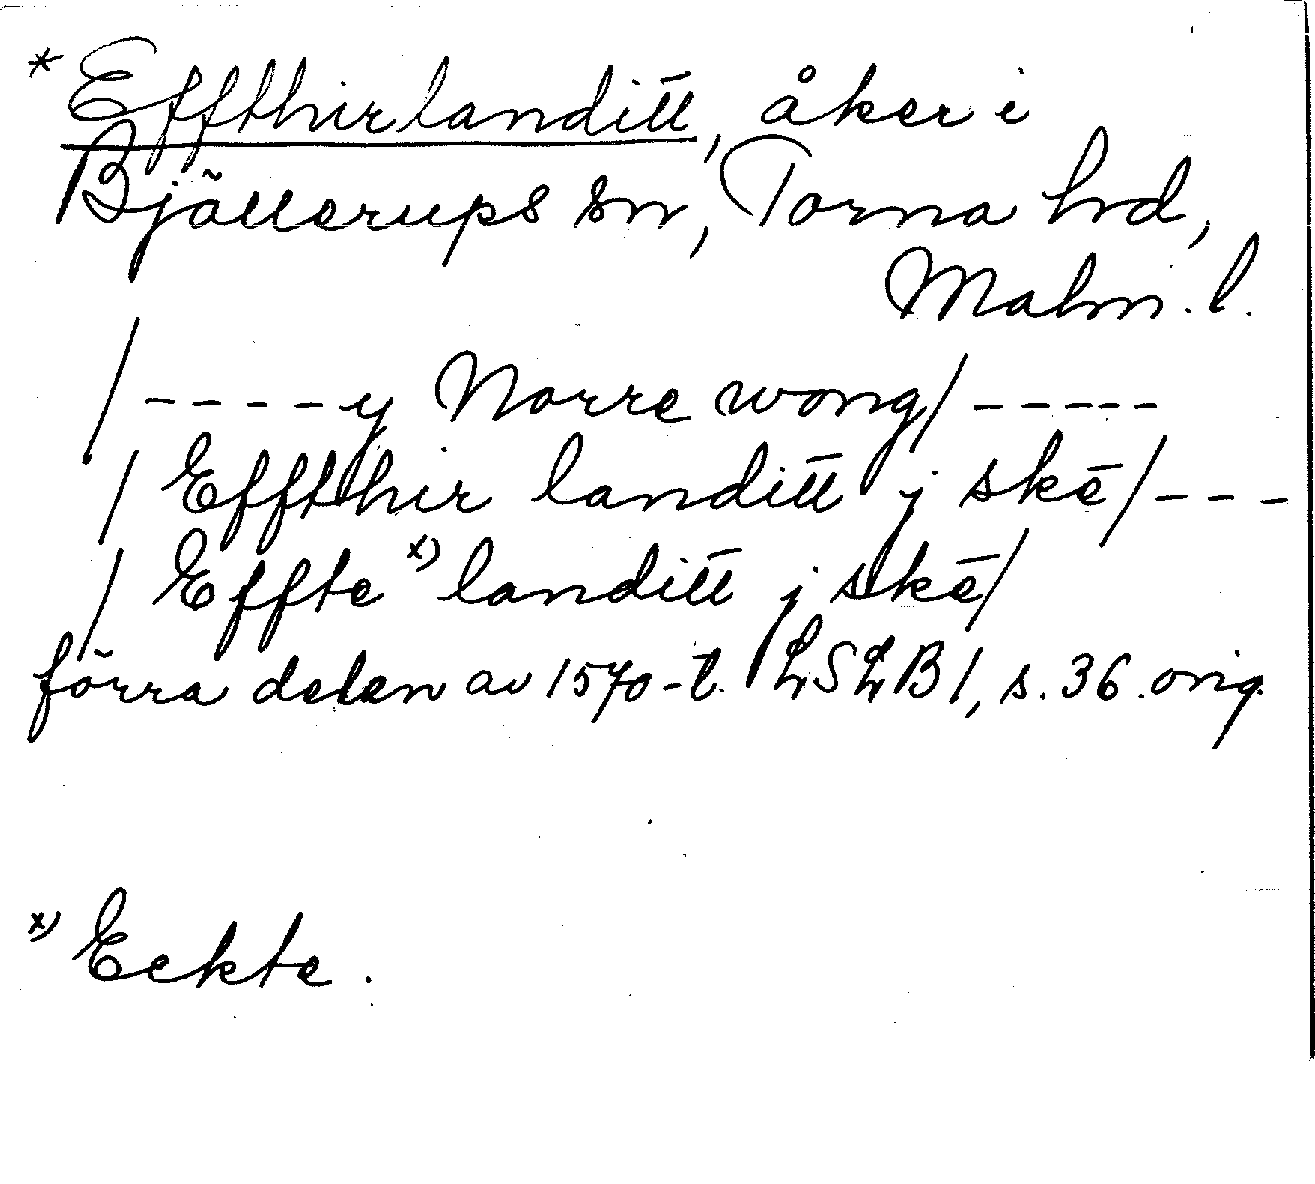 * Effthirlanditt, åker i
Bjällerups sn, Torna hd,
Malm. l.
/ - - - - y Norre wong / - - - - -
/ Effthir landitt j skē / - - -
/ Effte x) landitt j skē /
förra delen av 1570-t. LSLB 1, s. 36. orig.
x) Eckte.